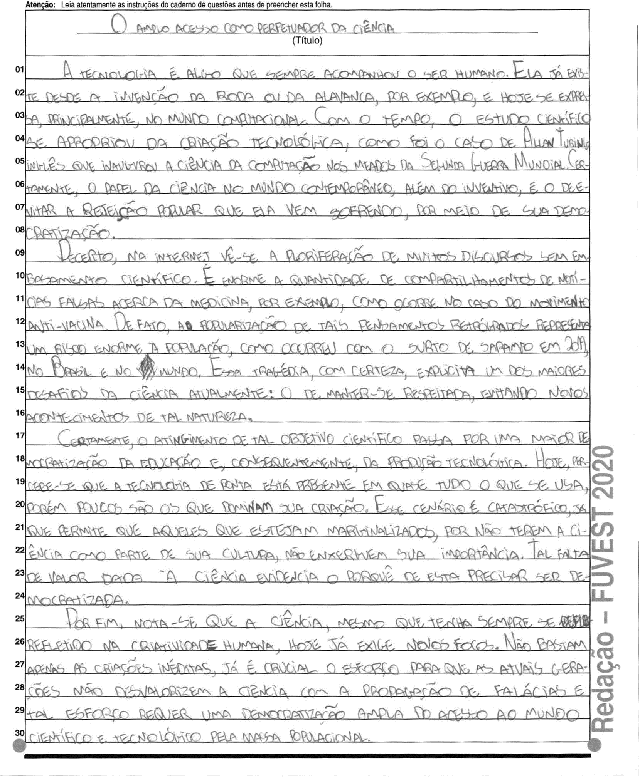 Atenção: Leia atentamente as instruções do caderno de questões antes de preencher esta folha.
O AMPLO ACESSO COMO PERPETUADOR DA CIÊNCIA
(Título)
01 A TECNOLOGIA É ALGO QUE SEMPRE ACOMPANHOU O SER HUMANO. ELA JÁ EXIS-
02 TE DESDE A INVENÇÃO DA RODA OU DA ALAVANCA, POR EXEMPLO, E HOJE SE EXPRES-
03 SA, PRINCIPALMENTE, NO MUNDO COMPUTACIONAL. COM O TEMPO, O ESTUDO CIENTÍFICO
04 SE APROPRIOU DA CRIAÇÃO TECNOLÓGICA, COMO FOI O CASO DE ALLAN TURING,
05 INGLÊS QUE INAUGUROU A CIÊNCIA DA COMPUTAÇÃO NOS MEADOS DA SEGUNDA GUERRA MUNDIAL. CER-
06 TAMENTE, O PAPEL DA CIÊNCIA NO MUNDO CONTEMPORÂNEO, ALÉM DO INVENTIVO, É O DE E-
07 VITAR A REJEIÇÃO POPULAR QUE ELA VEM SOFRENDO, POR MEIO DE SUA DEMO-
08 CRATIZAÇÃO.
09 DECERTO, NA INTERNET VÊ-SE A PLORIFERAÇÃO DE MUITOS DISCURSOS SEM EM-
10 BASAMENTO CIENTÍFICO. É ENORME A QUANTIDADE DE COMPARTILHAMENTOS DE NOTÍ-
11 CIAS FALSAS ACERCA DA MEDICINA, POR EXEMPLO, COMO OCORRE NO CASO DO MOVIMENTO
12 ANTI-VACINA. DE FATO, A POPULARIZAÇÃO DE TAIS PENSAMENTOS RETRÓGRADOS REPRESENTA
13 UM RISCO ENORME À POPULAÇÃO, COMO OCORREU COM O SURTO DE SARAMPO EM 2019,
14 NO BRASIL E NO MUNDO. ESSA TRAGÉDIA, COM CERTEZA, EXPLICITA UM DOS MAIORES
15 DESAFIOS DA CIÊNCIA ATUALMENTE: O DE MANTER-SE RESPEITADA, EVITANDO NOVOS
16 ACONTECIMENTOS DE TAL NATUREZA.
17 CERTAMENTE, O ATINGIMENTO DE TAL OBJETIVO CIENTÍFICO PASSA POR UMA MAIOR DE-
18 MOCRATIZAÇÃO DA EDUCAÇÃO E, CONSEQUENTEMENTE, DA PRODUÇÃO TECNOLÓGICA. HOJE, PER-
19 CEBE-SE QUE A TECNOLOGIA DE PONTA ESTÁ PRESENTE EM QUASE TUDO O QUE SE USA,
20 PORÉM POUCOS SÃO OS QUE DOMINAM SUA CRIAÇÃO. ESSE CENÁRIO É CATASTRÓFICO, JÁ
21 QUE PERMITE QUE AQUELES QUE ESTEJAM MARGINALIZADOS, POR NÃO TEREM A CI-
22 ÊNCIA COMO PARTE DE SUA CULTURA, NÃO ENXERGUEM SUA IMPORTÂNCIA. TAL FALTA
23 DE VALOR DADA À CIÊNCIA EVIDENCIA O PORQUÊ DE ESTA PRECISAR SER DE-
24 MOCRATIZADA.
25 POR FIM, NOTA-SE QUE A CIÊNCIA, MESMO QUE TENHA SEMPRE SE
26 REFLETIDO NA CRIATIVIDADE HUMANA, HOJE JÁ EXIGE NOVOS FOCOS. NÃO BASTAM
27 APENAS AS CRIAÇÕES INÉDITAS, JÁ É CRUCIAL O ESFORÇO PARA QUE AS ATUAIS GERA-
28 ÇÕES NÃO DESVALORIZEM A CIÊNCIA COM A PROPAGAÇÃO DE FALÁCIAS E
29 TAL ESFORÇO REQUER UMA DEMOCRATIZAÇÃO AMPLA DO ACESSO AO MUNDO
30 CIENTÍFICO E TECNOLÓGICO PELA MASSA POPULACIONAL.
Redação – FUVEST 2020